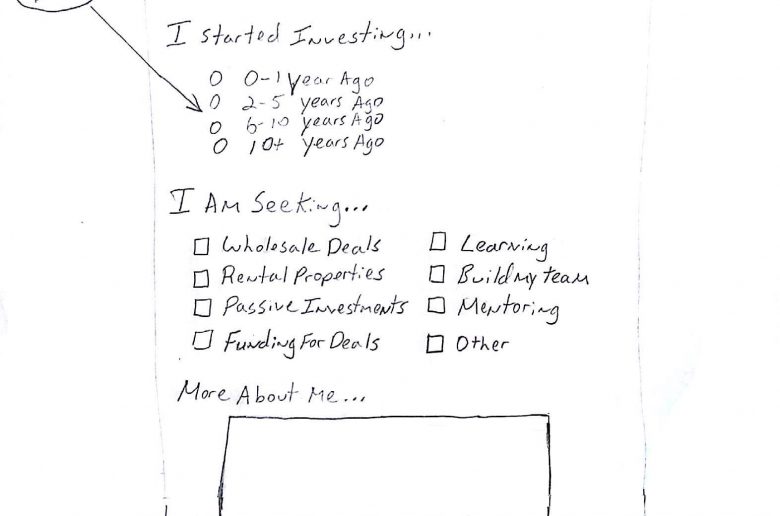 I started Investing...
O 0-1 year Ago
O 2-5 years Ago
O 6-10 years Ago
O 10+ years Ago
I Am Seeking...
☐ Wholesale Deals ☐ Learning
☐ Rental Properties ☐ Build my team
☐ Passive Investments ☐ Mentoring
☐ Funding For Deals ☐ Other
More About Me...